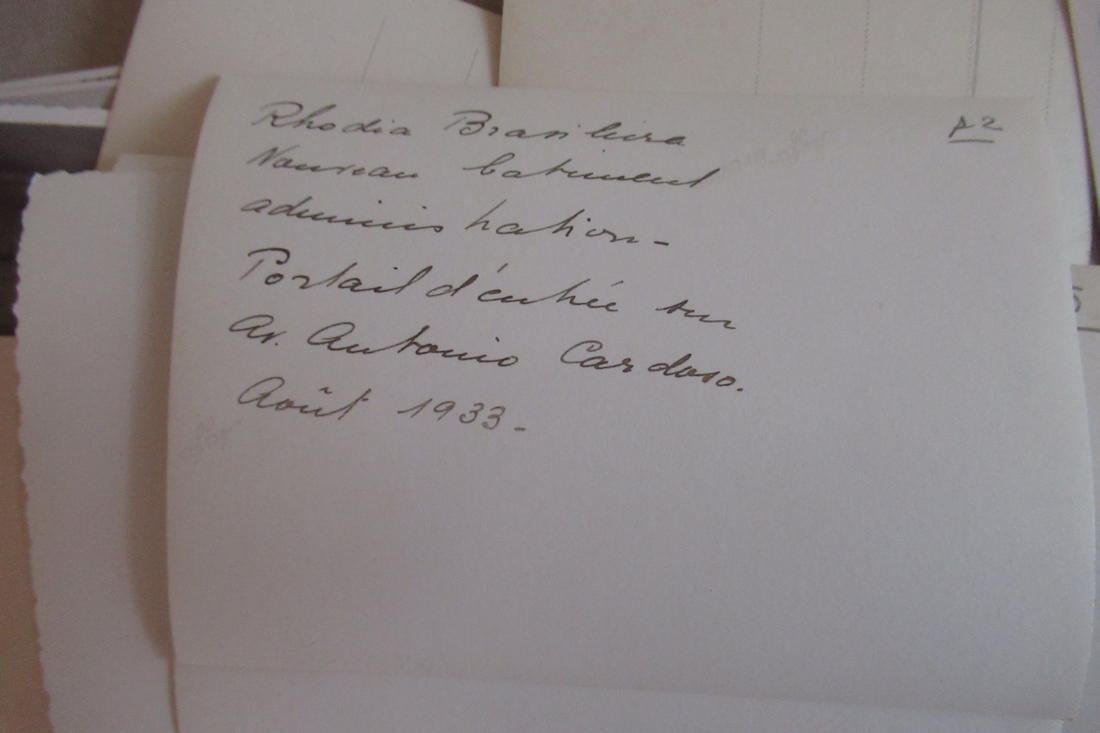 Rhodia Brasileira
A2
Nouveau batiment
administration -
Portail d'entrée sur
Av. Antonio Cardoso.
Août 1933 -
5